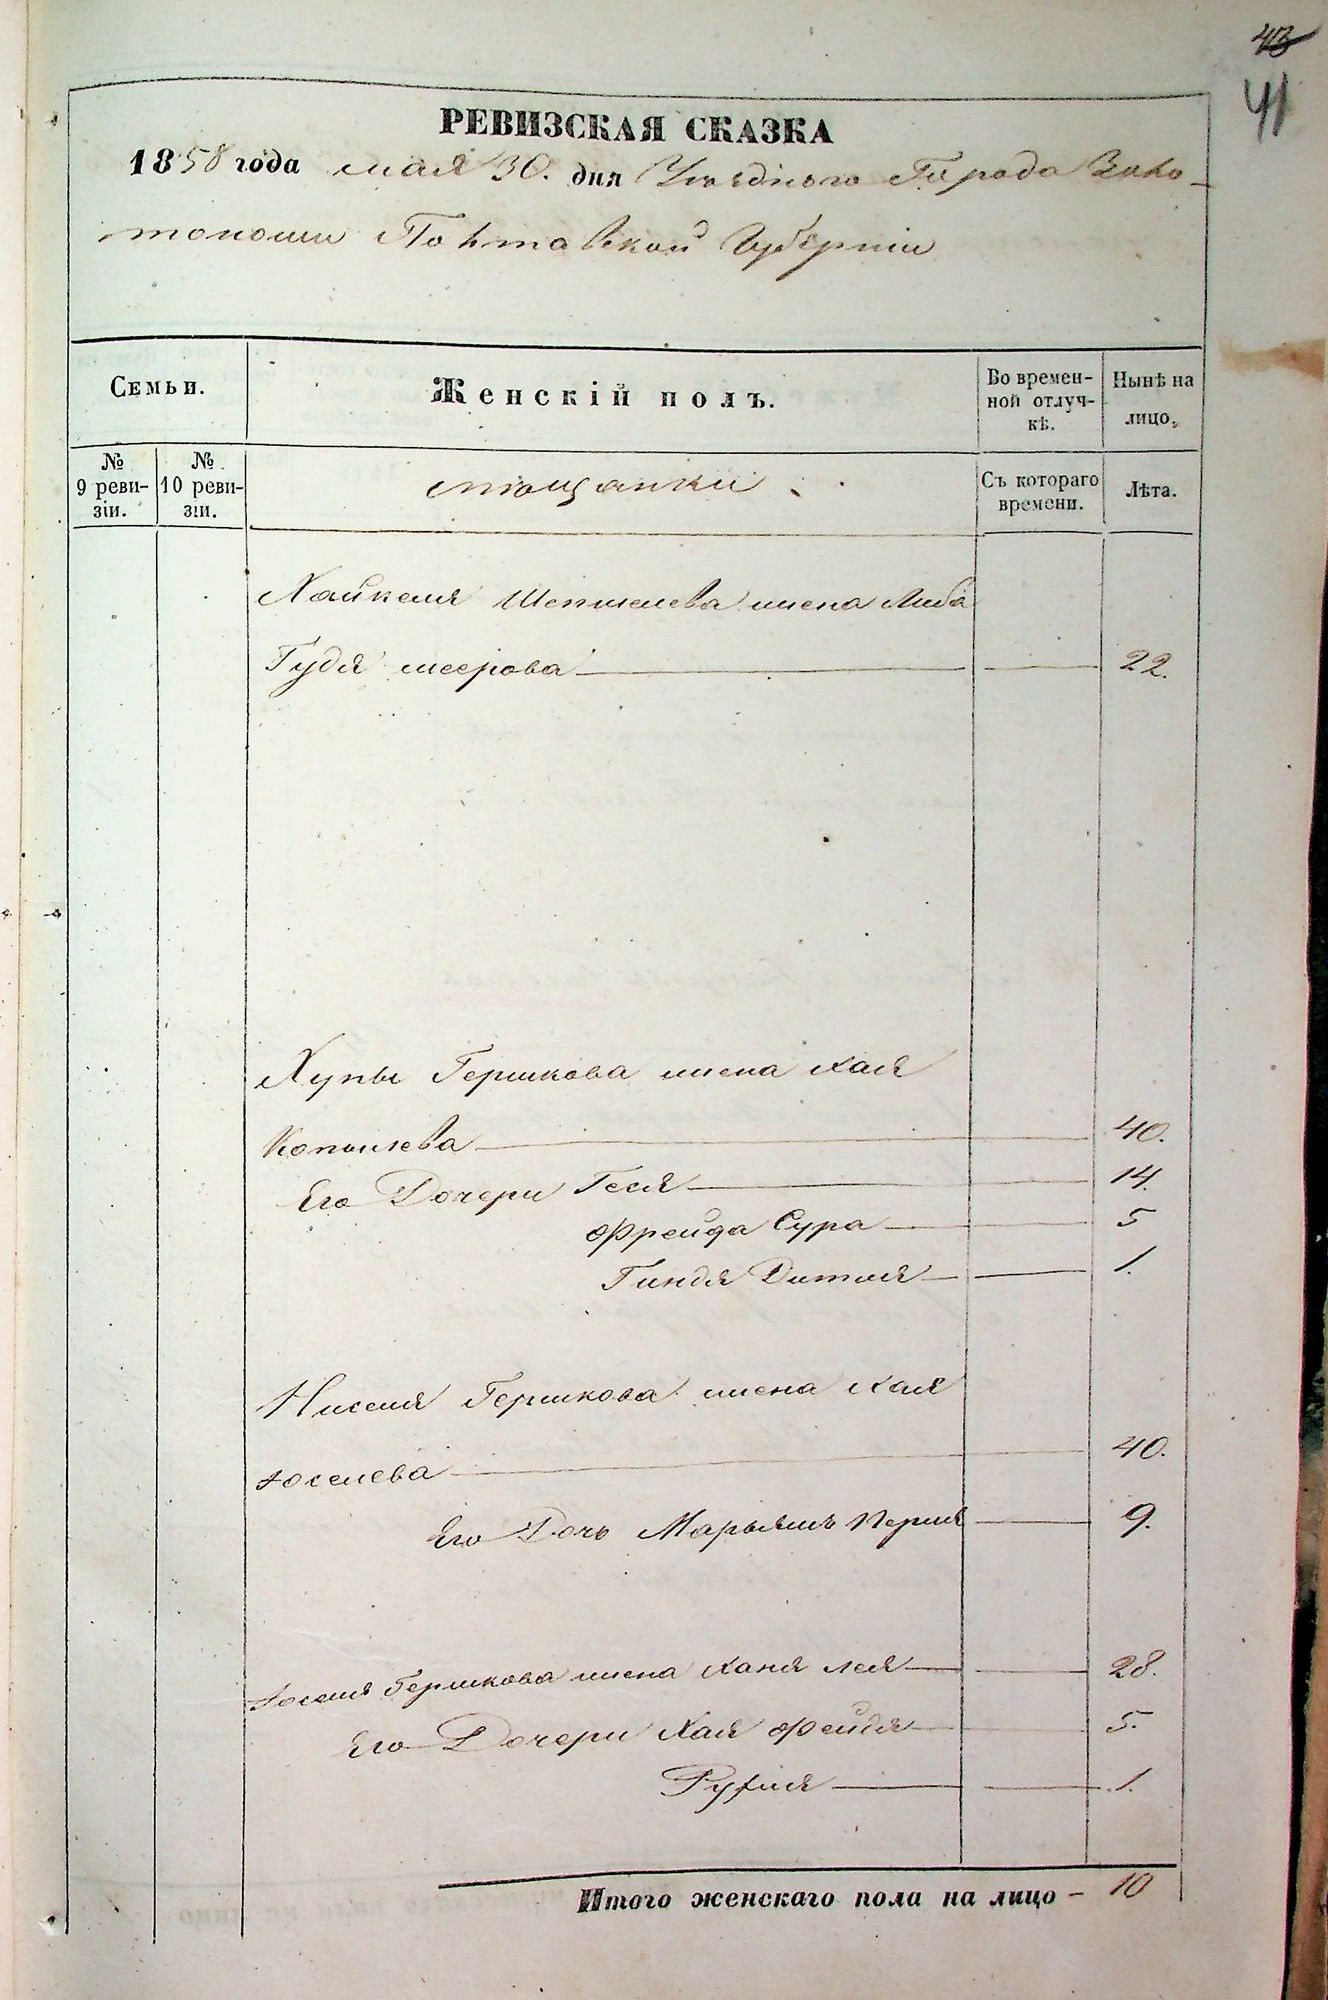 43
41
РЕВИЗСКАЯ СКАЗКА
1858 года мая 30. дня Уѣзднаго Города Золо-
тоноши Полтавской Губерніи
Семьи.
Женскій полъ.
Во времен-
ной отлуч-
кѣ.
Нынѣ на
лицо.
№
9 реви-
зіи.
№
10 реви-
зіи.
мѣщанки
Съ котораго
времени.
Лѣта.
Хайкеля Шепшелева жена Либа
Гудя меерова 22.
Хупы Гершкова жена Хая
Копылева 40.
Его Дочери Геся 14.
Фрейда Сура 5
Гиндя 1.
Ниселя Гершкова жена Хая
Іоселева 40.
Его Дочь Марьямъ Перля 9.
Іоселя Гершкова жена Ханя Лея 28.
Его Дочери Хая Фейдя 5.
1.
Итого женскаго пола на лицо - 10